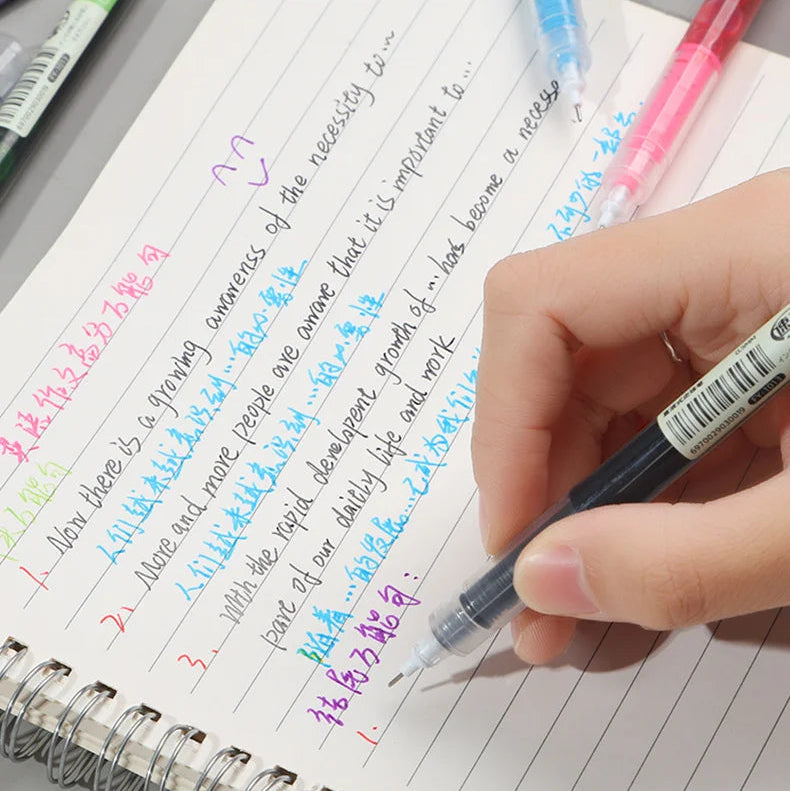 英语作文高分万能句
万能句
1. Now there is a growing awarenss of the necessity to...
人们越来越意识到...的必要性
2. More and more people are aware that it is important to...
人们越来越意识到...的必要性
3. With the rapid develapent growth of ... has become a necesse
pare of our daitily life and work
随着...的发展...已成为我们
不可少的一部分.
结尾万能句:
1.
6970029030019
SY-1013